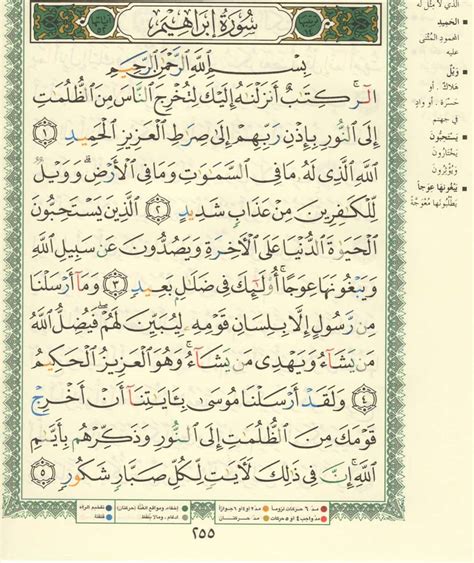 سُورَةُ إِبْرَاهِيمَ
بِسْمِ ٱللَّهِ ٱلرَّحْمَٰنِ ٱلرَّحِيمِ
الٓر ۚ كِتَٰبٌ أَنزَلْنَٰهُ إِلَيْكَ لِتُخْرِجَ ٱلنَّاسَ مِنَ ٱلظُّلُمَٰتِ
إِلَى ٱلنُّورِ بِإِذْنِ رَبِّهِمْ إِلَىٰ صِرَٰطِ ٱلْعَزِيزِ ٱلْحَمِيدِ ١
ٱللَّهِ ٱلَّذِى لَهُۥ مَا فِى ٱلسَّمَٰوَٰتِ وَمَا فِى ٱلْأَرْضِ ۗ وَوَيْلٌ
لِّلْكَٰفِرِينَ مِنْ عَذَابٍ شَدِيدٍ ٢ ٱلَّذِينَ يَسْتَحِبُّونَ
ٱلْحَيَوٰةَ ٱلدُّنْيَا عَلَى ٱلْءَاخِرَةِ وَيَصُدُّونَ عَن سَبِيلِ ٱللَّهِ
وَيَبْغُونَهَا عِوَجًا ۚ أُو۟لَٰٓئِكَ فِى ضَلَٰلٍۭ بَعِيدٍ ٣ وَمَآ أَرْسَلْنَا
مِن رَّسُولٍ إِلَّا بِلِسَانِ قَوْمِهِۦ لِيُبَيِّنَ لَهُمْ ۖ فَيُضِلُّ ٱللَّهُ
مَن يَشَآءُ وَيَهْدِى مَن يَشَآءُ ۚ وَهُوَ ٱلْعَزِيزُ ٱلْحَكِيمُ
٤ وَلَقَدْ أَرْسَلْنَا مُوسَىٰ بِـَٔايَٰتِنَآ أَنْ أَخْرِجْ
قَوْمَكَ مِنَ ٱلظُّلُمَٰتِ إِلَى ٱلنُّورِ وَذَكِّرْهُم بِأَيَّىٰمِ
ٱللَّهِ ۚ إِنَّ فِى ذَٰلِكَ لَءَايَٰتٍ لِّكُلِّ صَبَّارٍ شَكُورٍ ٥
الذي لا مثل له
الحميد
المحمود المثنى
عليه
ويل
هلاك . أو
حسرة . أو وادٍ
في جهنم
يستحبون
يختارون
ويؤثرون
يبغونها عوجاً
يطلبونها معوجة
مد ٦ حركات لزوماً
مد ٢ أو ٤ أو ٦ جوازاً
إخفاء، ومواقع الغنة (حركتان)
تفخيم الراء
مد واجب ٤ أو ٥ حركات
مد حركتان
إدغام، وما لا يلفظ
قلقلة
٢٥٥